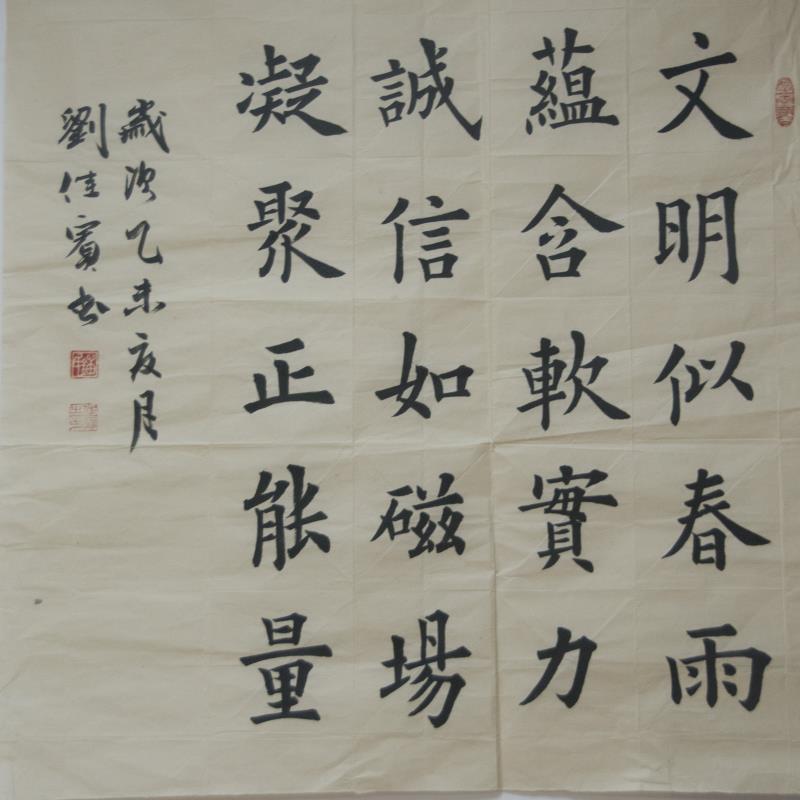 文明似春雨
蘊含軟實力
誠信如磁場
凝聚正能量
歲次乙未夏月
劉佳賓書